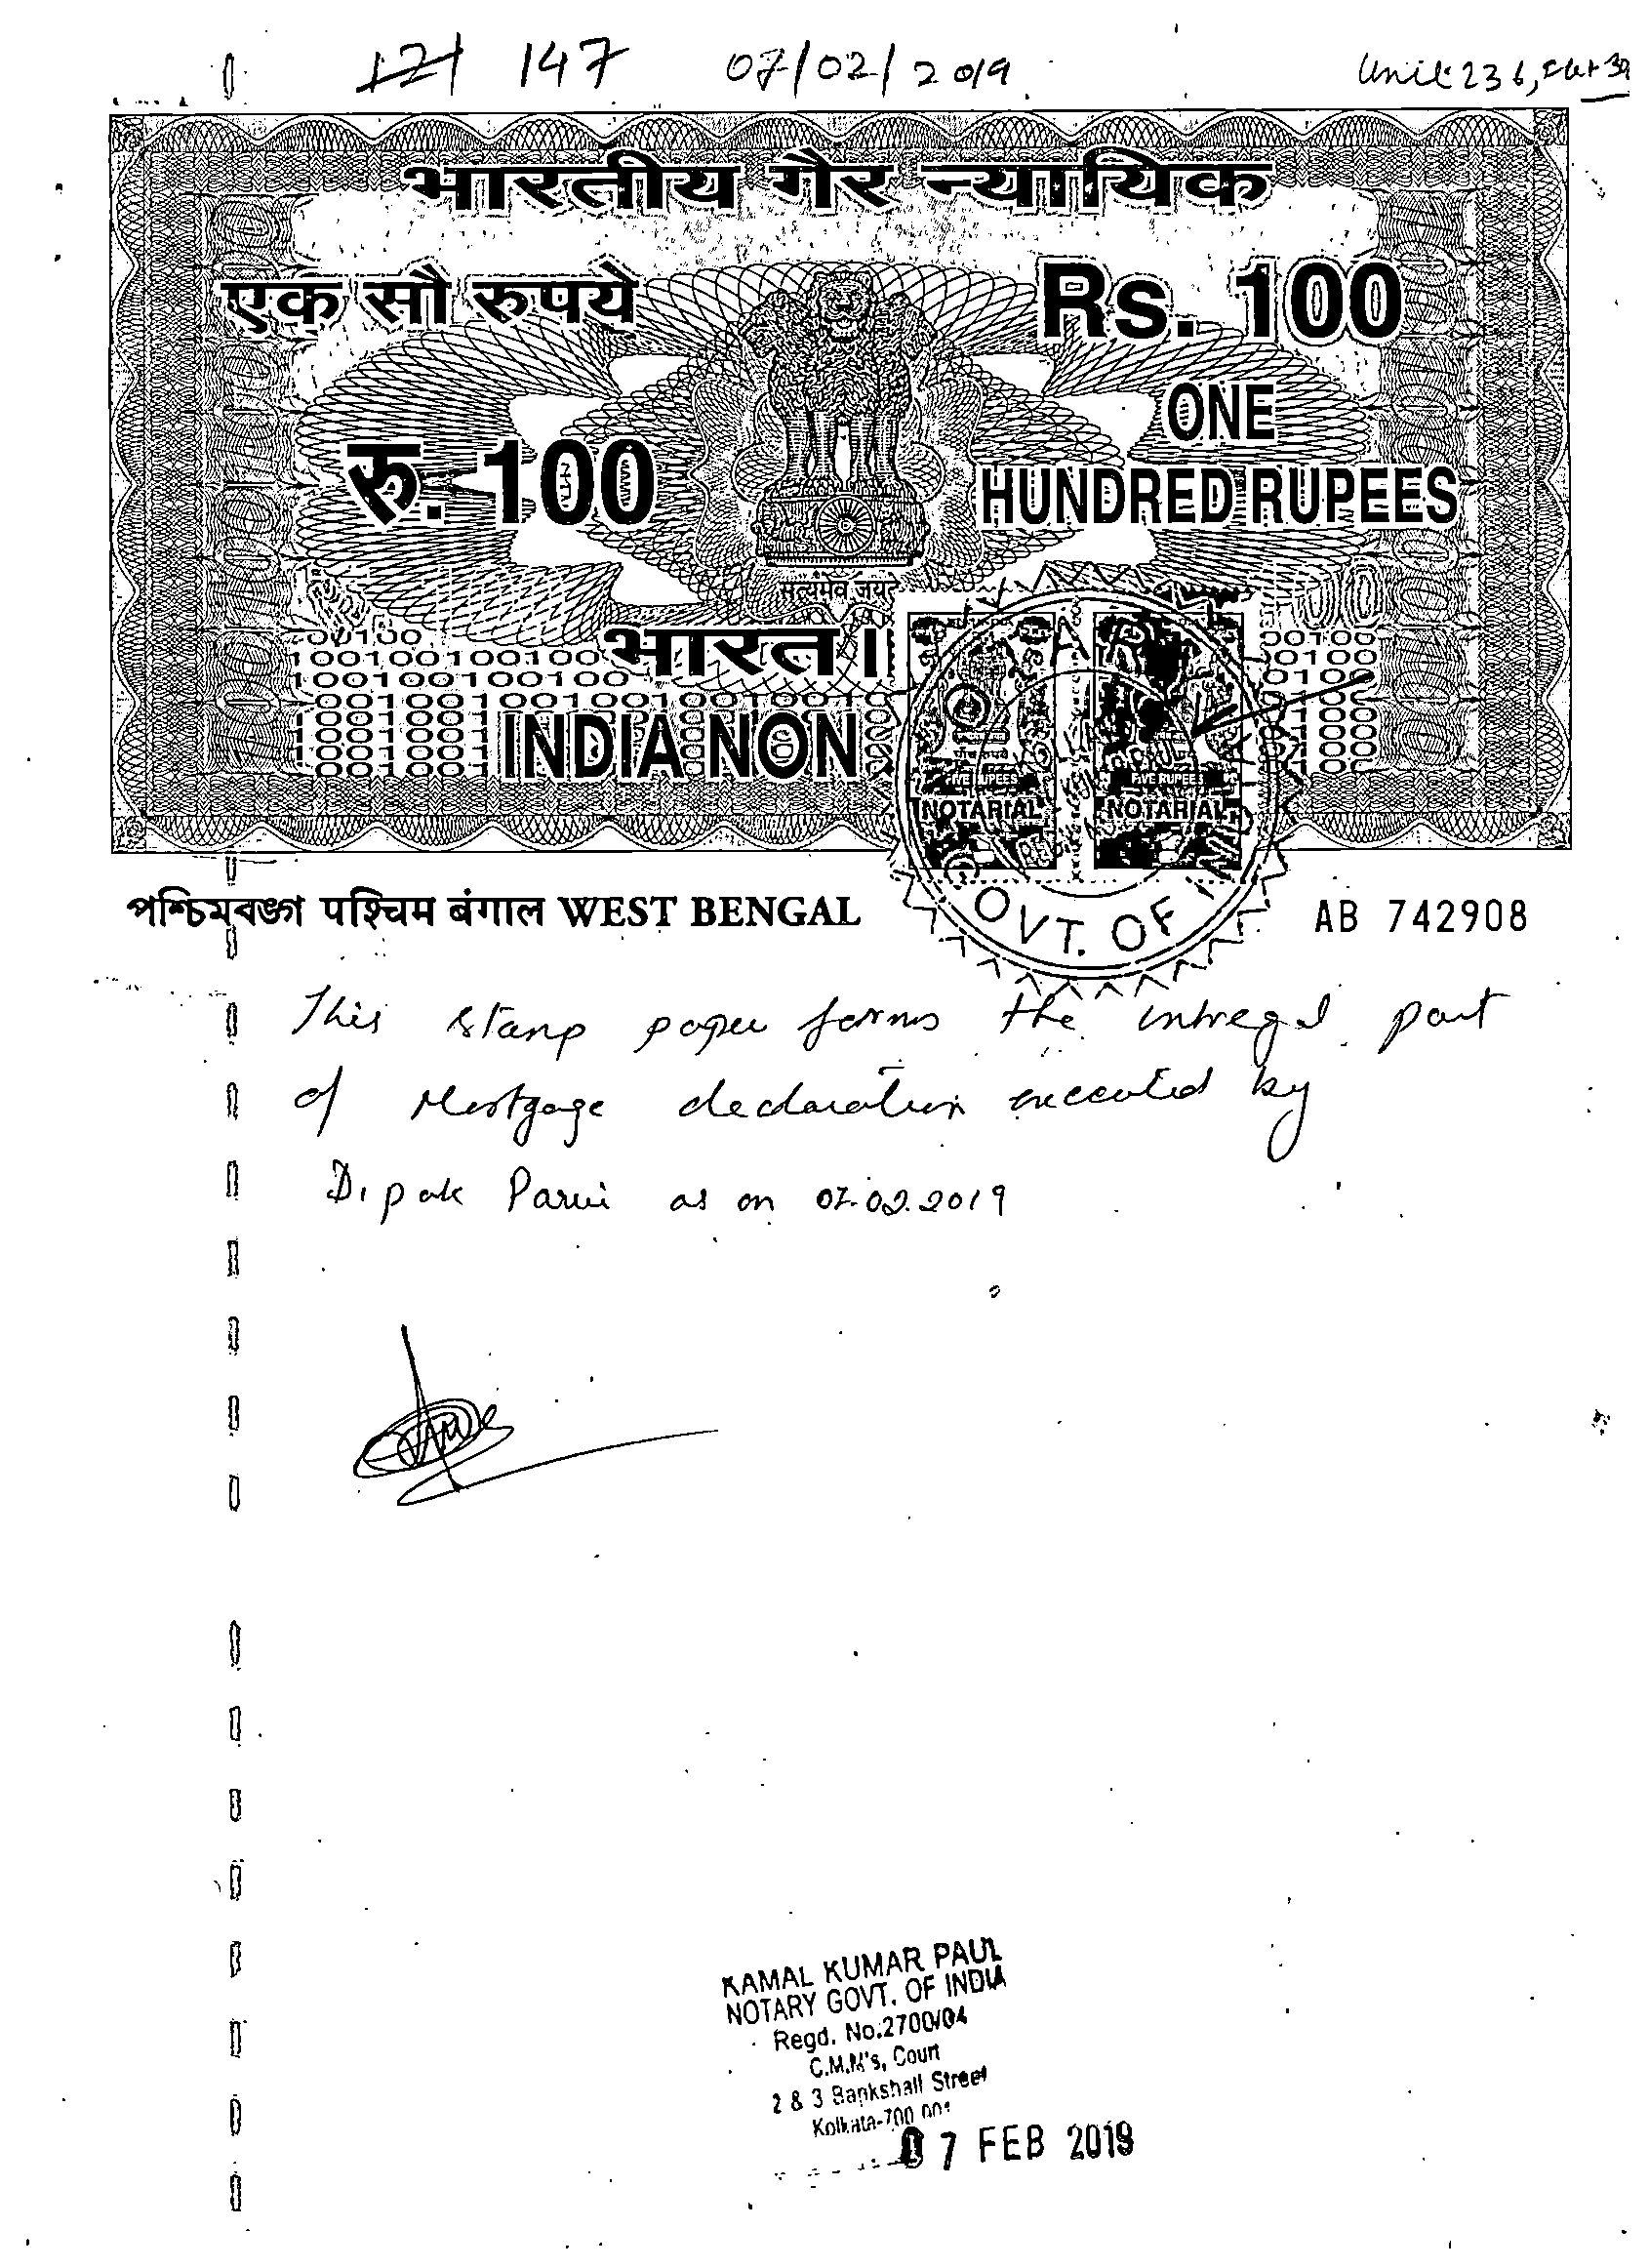 147 07/02/2019 Unit 236,
भारतीय गैर न्यायिक
एक सौ रुपये Rs. 100
रु. 100 ONE
HUNDRED RUPEES
सत्यमेव जयते
भारत
INDIA NON
FIVE RUPEES FIVE RUPEES
NOTARIAL NOTARIAL
GOVT. OF
পশ্চিমবঙ্গ पश्चिम बंगाल WEST BENGAL AB 742908
This stamp paper forms the intregal part
of Mortgage declaration executed by
Dipak Parui as on 07.02.2019
KAMAL KUMAR PAUL
NOTARY GOVT. OF INDIA
Regd. No.2700/04
C.M.M's, Court
2 & 3 Bankshall Street
Kolkata-700 001
07 FEB 2019